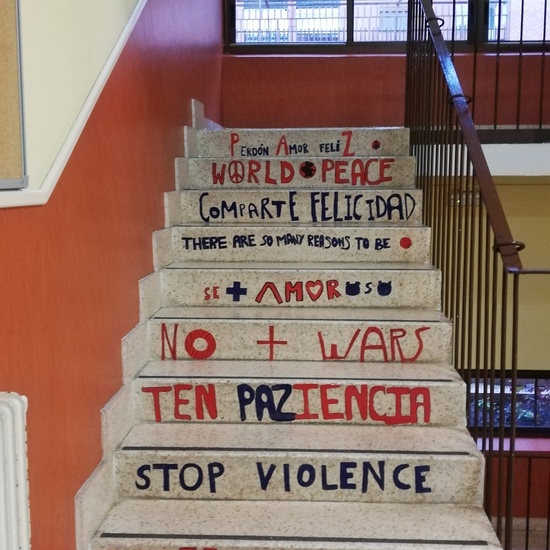 PERDÓN AMOR FELIZ
WORLD PEACE
COMPARTE FELICIDAD
THERE ARE SO MANY REASONS TO BE
SE + AMOROSO
NO + WARS
TEN PAZIENCIA
STOP VIOLENCE